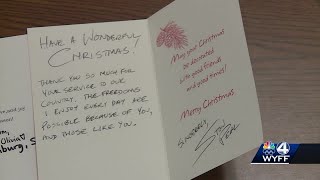 HAVE A WONDERFUL
CHRISTMAS!
THANK YOU SO MUCH FOR
YOUR SERVICE TO OUR
COUNTRY. THE FREEDOMS
I ENJOY EVERY DAY ARE
POSSIBLE BECAUSE OF YOU,
AND THOSE LIKE YOU.
May your Christmas
be decorated
with good friends
and good times!
Merry Christmas
SINCERELY,
Olivia
burg, S
4
WYFF